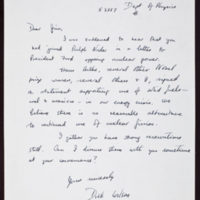 Dept of Physics
Dear Jim,
I was saddened to hear that you
had joined Ralph Nader in a letter to
President Ford opposing nuclear power.
Hans Bethe, several other Nobel
prize winners, several others & I, signed
a statement supporting use of what fuels
and & uranium in our energy crisis. We
believe there is no reasonable alternative
to continued use of nuclear fission.
I gather you have strong reservations
still. Can I discuss them with you sometime
at your convenience?
Yours sincerely
Dick Wilson